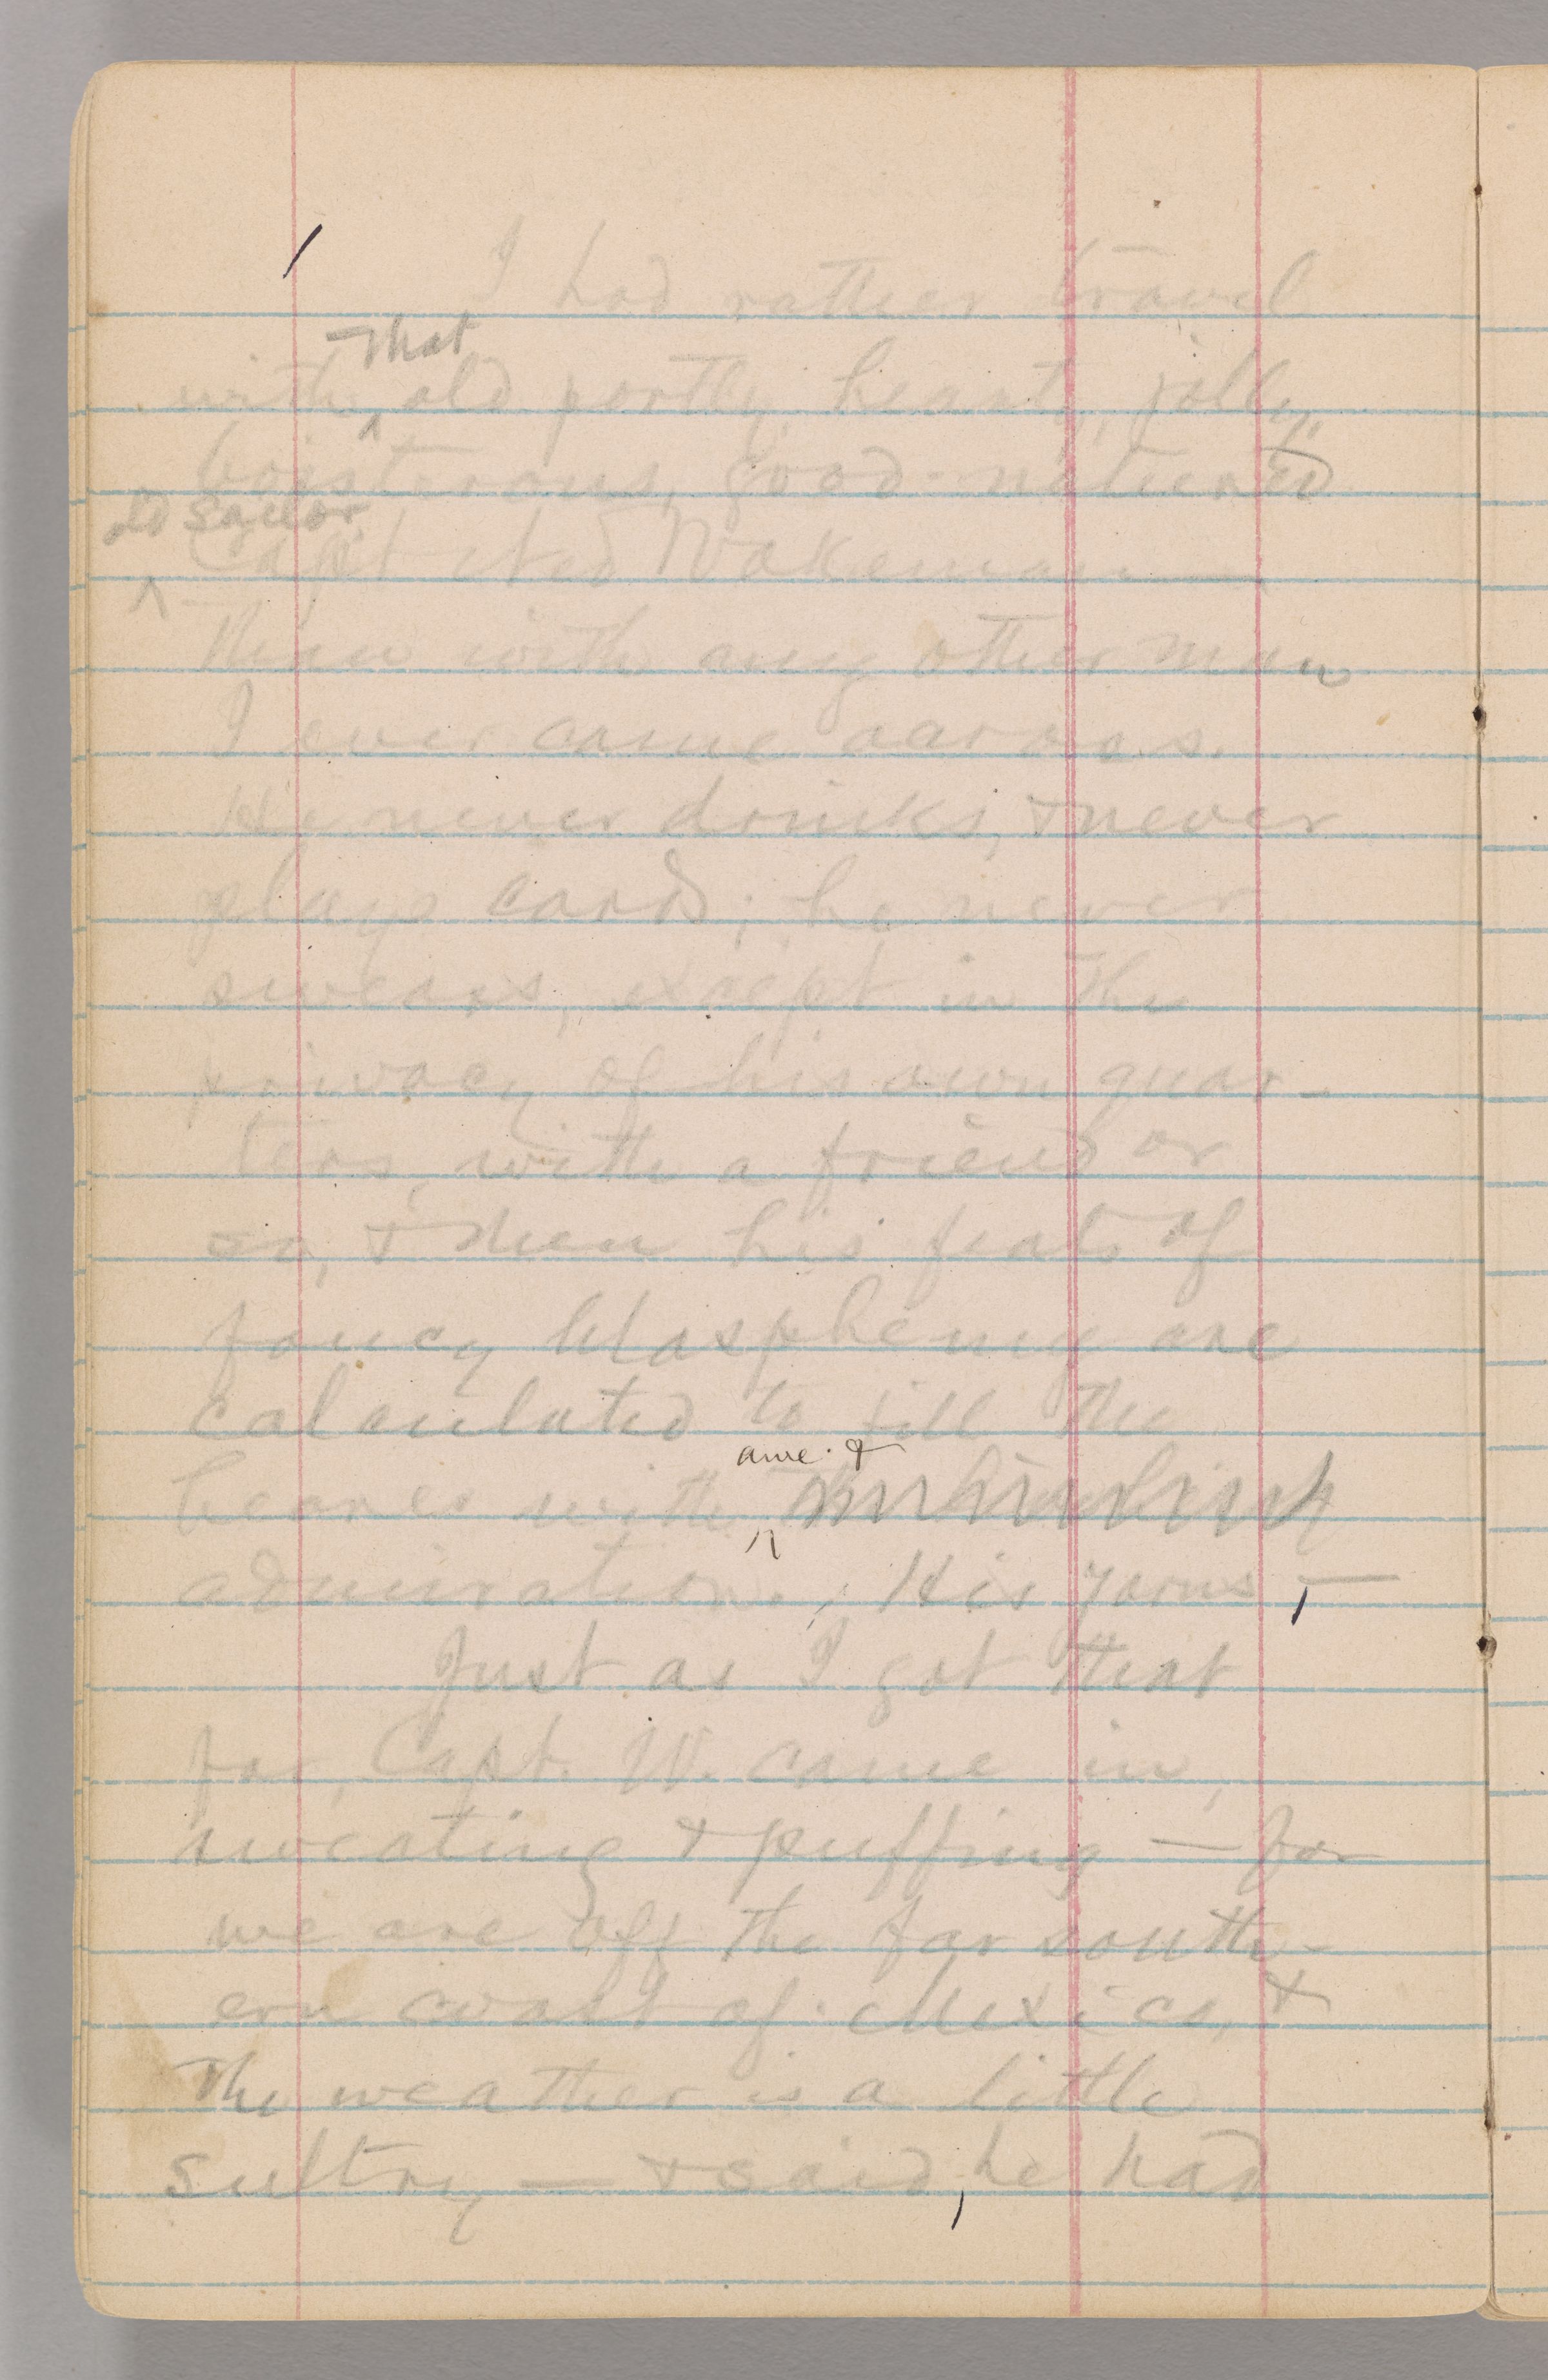 I had rather travel
with that old portly, hearty, jolly,
boisterous, good-natured
old sailor Capt Ned Wakeman
than with any other man
I ever came across.
He never drinks, & never
plays cards; he never
swears, except in the
privacy of his own quar-
ters, with a friend or
so, & then his feats of
fancy blasphemy are
calculated to fill the
hearer with awe &
admiration. His yarns —
Just as I got that
far, Capt. W. came in,
sweating & puffing — for
we are off the far south-
ern coast of Mexico, &
the weather is a little
sultry — & said, he had